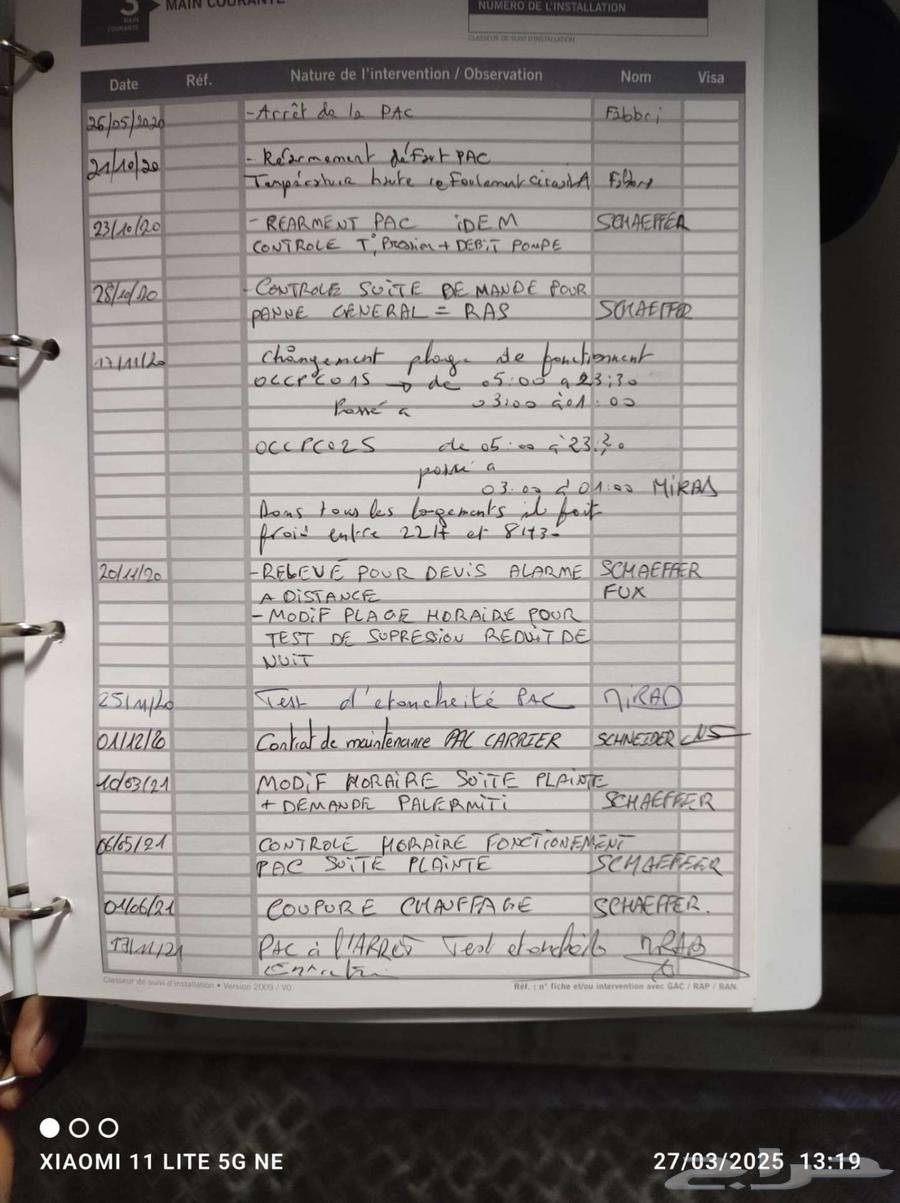 3 MAIN COURANTE
MAIN
COURANTE
NUMÉRO DE L'INSTALLATION
CLASSEUR DE SUIVI D'INSTALLATION
Date Réf. Nature de l'intervention / Observation Nom Visa
26/05/2020 - Arrêt de la PAC Fabbri
21/10/20 - Réarmement défaut PAC
Température haute refoulement circuit A
23/10/20 - REARMENT PAC iDEM SCHAEFFER
CONTROLE T°, Pression + DEBIT POMPE
28/10/20 - CONTROLE SUITE DEMANDE POUR
PANNE GENERAL = RAS SCHAEFFER
17/11/20 Changement plage de fonctionnent
OCCPC01S → de 05:00 a 23:30
Passé a 03:00 à 01:00
OCCPC02S de 05:00 à 23:30
passé a
03:00 à 01:00 MiRAS
Dans tous les logements il fait
froid entre 22H et 8H3-
20/11/20 - RELEVÉ POUR DEVIS ALARME SCHAEFFER
A DISTANCE FUX
- MODIF PLAGE HORAIRE POUR
TEST DE SUPRESSION REDUIT DE
NUIT
25/11/20 Test d'etoncheité PAC
01/12/20 Contrat de maintenance PAC CARRIER SCHNEIDER
10/03/21 MODIF HORAIRE SUITE PLAINTE
+ DEMANDE PALERMITI SCHAEFFER
06/05/21 CONTROLE HORAIRE FONCTIONEMENT
PAC SUITE PLAINTE SCHAEFFER
01/06/21 COUPURE CHAUFFAGE SCHAEFFER.
17/11/21 PAC à l'ARRET Test
Classeur de suivi d'installation • Version 2009 / V0 Réf. : n° fiche et/ou intervention avec GAC / RAP / RAN.
XIAOMI 11 LITE 5G NE 27/03/2025 13:19
حراج